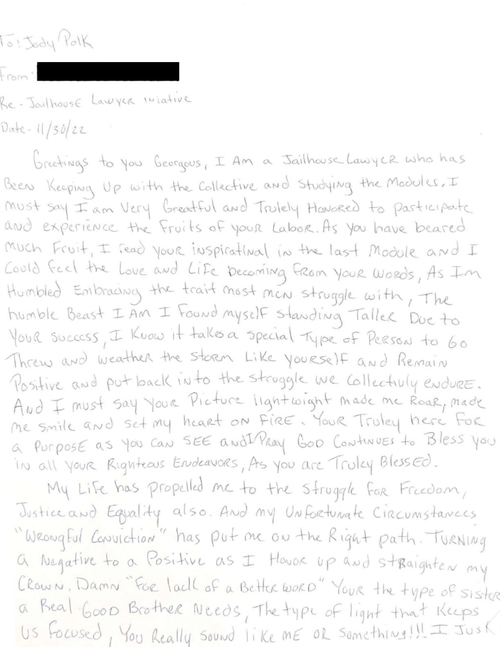 To: Jody Polk
From
Re - Jailhouse Lawyer Iniative
Date - 11/30/22
Greetings to you Georgous, I Am a Jailhouse Lawyer who has
Been Keeping Up with the Collective and Studying the Modules, I
must say I am Very Greatful and Trulely Honored to participate
and experience the Fruits of your Labor. As you have beared
Much Fruit, I read your inspiratinal in the last Module and I
Could feel the Love and Life becoming From your words, As I'm
Humbled Embracing the trait most men struggle with, The
humble Beast I Am I Found myself Standing Taller Due to
Your Success, I Know it takes a Special Type of Person to Go
Threw and weather the Storm Like yourself and Remain
Positive and put back into the struggle we Collectivly endure.
And I must say Your Picture lightwight made me Roar, made
me smile and set my heart on FIRE. Your Truley here For
a Purpose as you can See and I Pray God Continues to Bless you
in all your Righteous Endeavors, As you are Truley Blessed.
My Life has propelled me to the Struggle for Freedom,
Justice and Equality also. And my Unfortunate Circumstances
"Wrongful Conviction" has put me on the Right path. Turning
a Negative to a Positive as I Honor up and straighten my
Crown. Damn "For lack of a Better word" Your the type of sister
a Real Good Brother Needs, The type of light that Keeps
us focused, You Really Sound like me or something!!! I Just